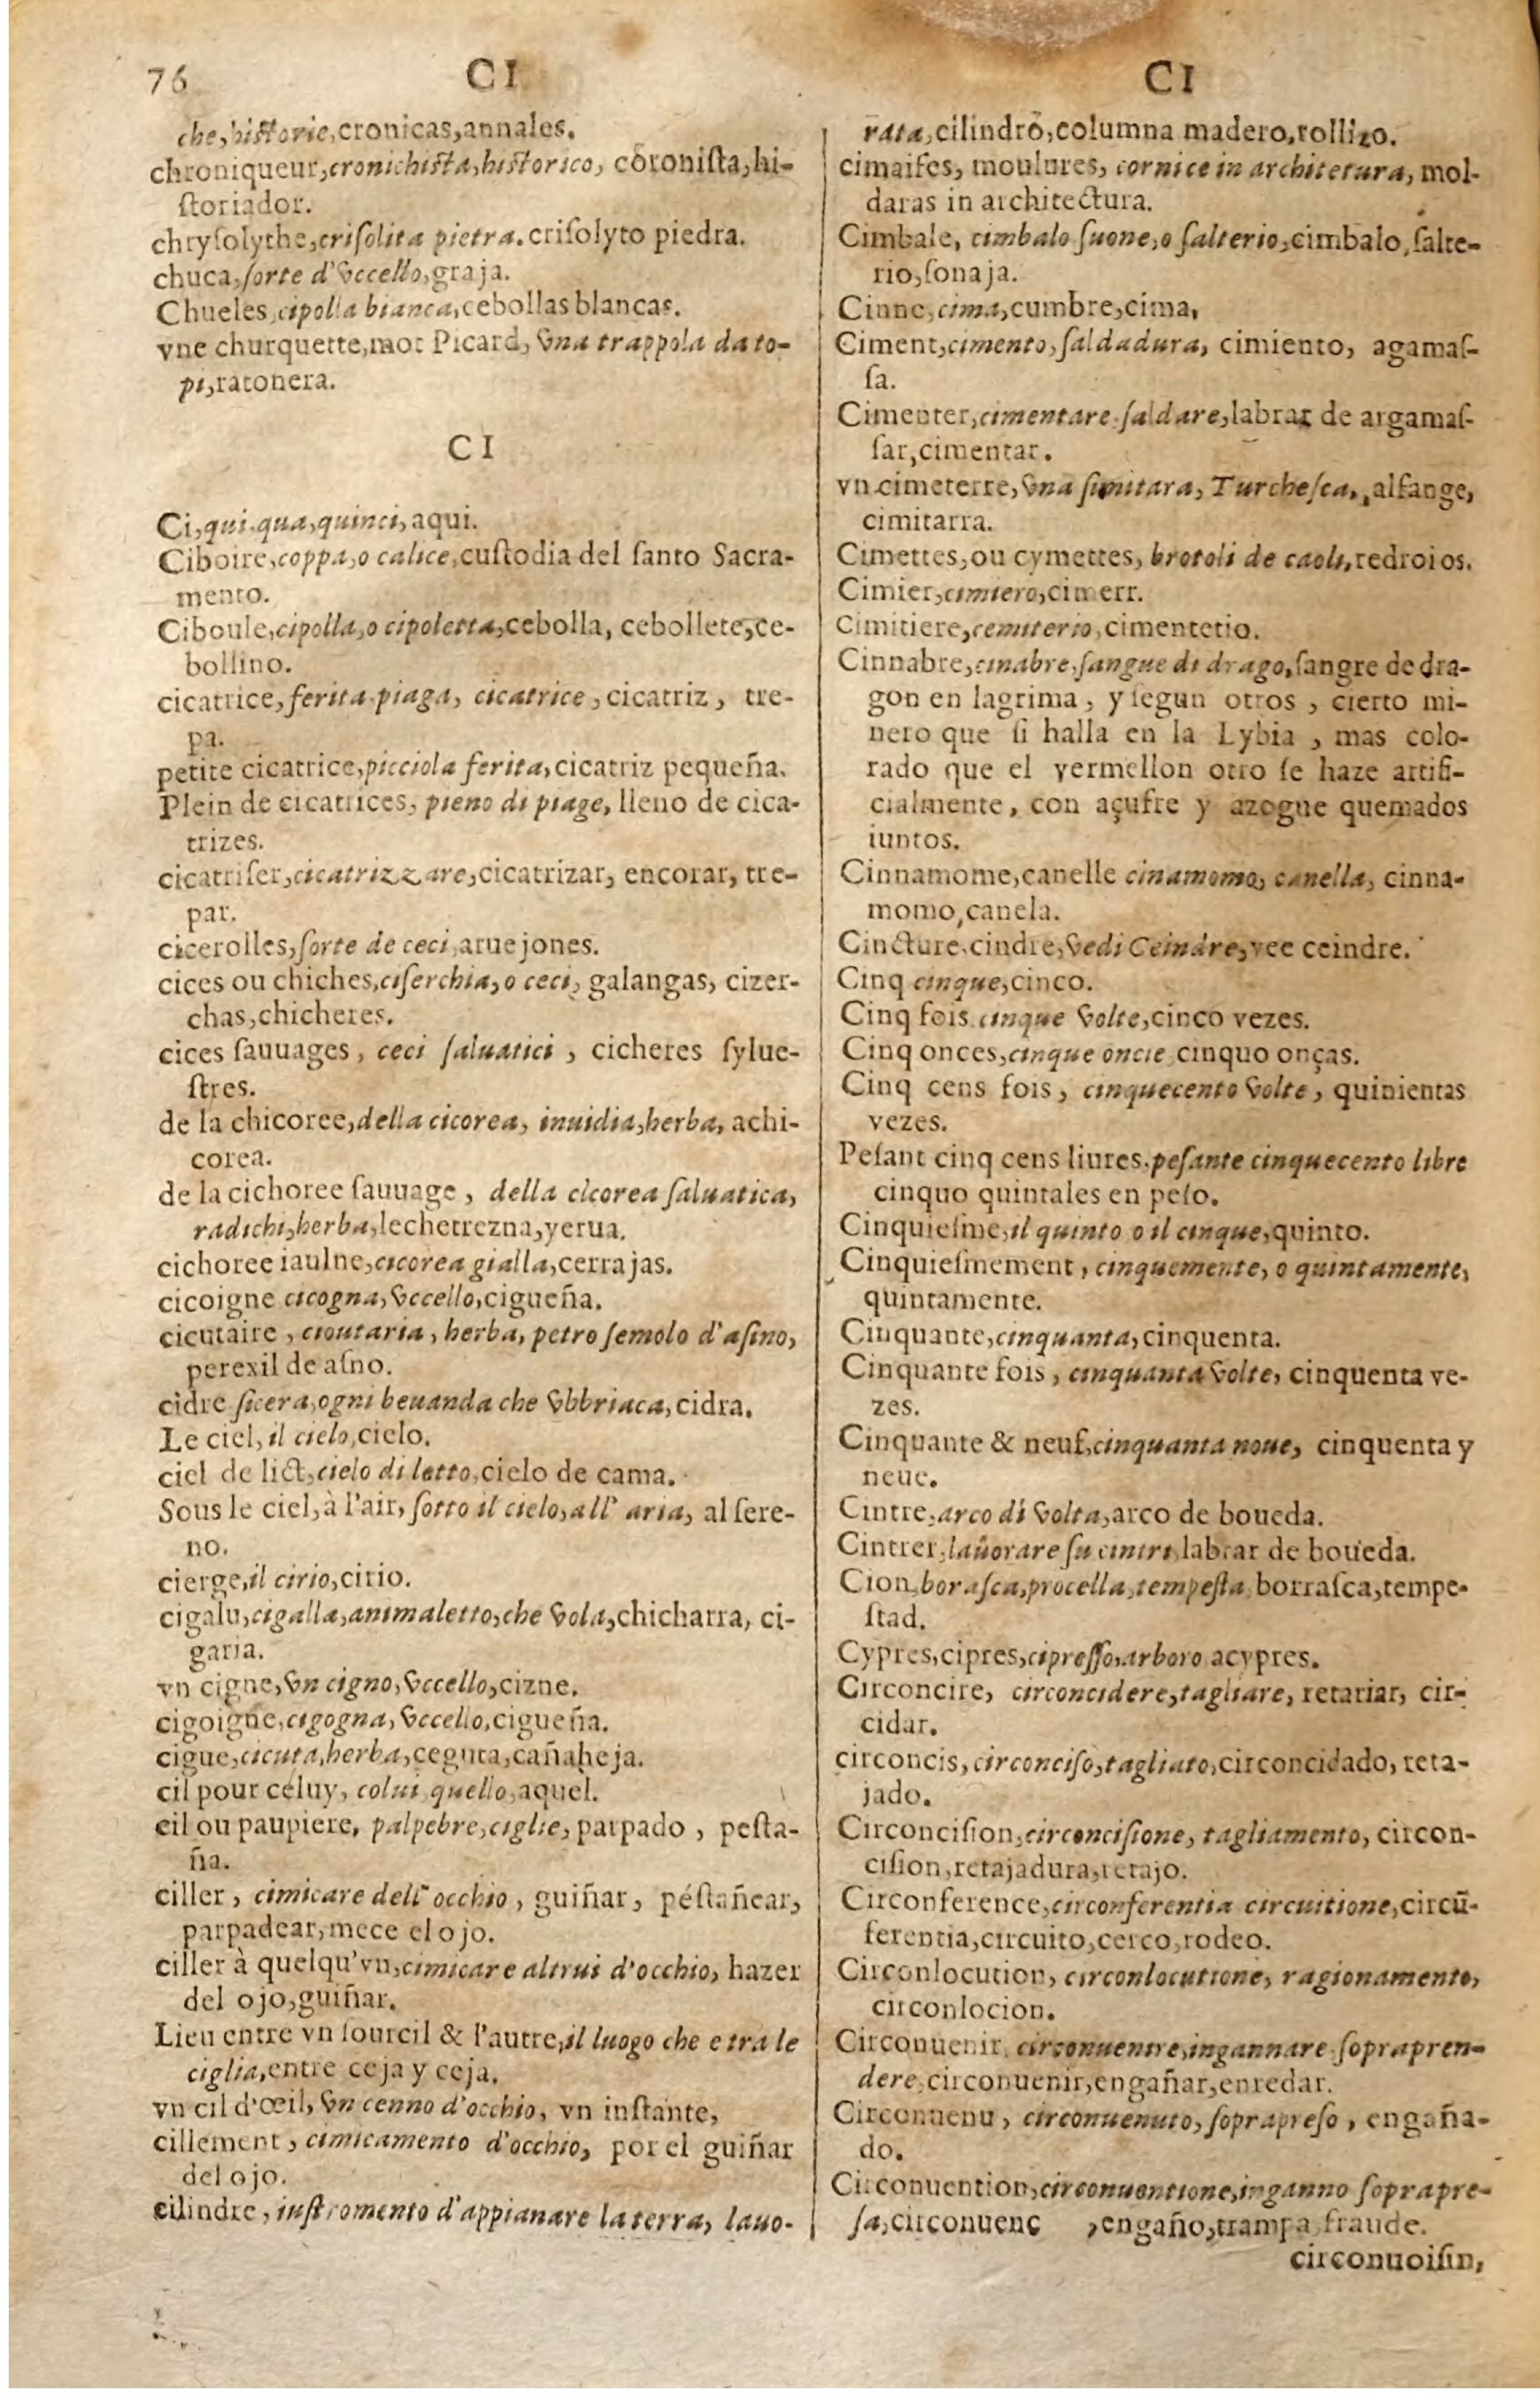 76
CI
che, historie, cronicas, annales.
chroniqueur, cronichista, historico, coronista, hi-
storiador.
chrysolythe, crisolita pietra. crisolyto piedra.
chuca, sorte d'vccello, graja.
Chueles, cipolla bianca, cebollas blancas.
vne churquette, mot Picard, vna trappola da to-
pi, ratonera.
CI
Ci, qui. qua, quinci, aqui.
Ciboire, coppa, o calice, custodia del santo Sacra-
mento.
Ciboule, cipolla, o cipoletta, cebolla, cebollete, ce-
bollino.
cicatrice, ferita. piaga, cicatrice, cicatriz, tre-
pa.
petite cicatrice, picciola ferita, cicatriz pequeña.
Plein de cicatrices, pieno di piage, lleno de cica-
trizes.
cicatriser, cicatrizzare, cicatrizar, encorar, tre-
par.
cicerolles, sorte de ceci, aruejones.
cices ou chiches, ciserchia, o ceci, galangas, cizer-
chas, chicheres.
cices sauuages, ceci saluatici, cicheres sylue-
stres.
de la chicoree, della cicorea, inuidia, herba, achi-
corea.
de la cichoree sauuage, della cicorea saluatica,
radichi, herba, lechetrezna, yerua.
cichoree iaulne, cicorea gialla, cerrajas.
cicoigne cicogna, vccello, cigueña.
cicutaire, cioutaria, herba, petrosemolo d'asino,
perexil de asno.
cidre sicera, ogni beuanda che vbbriaca, cidra.
Le ciel, il cielo, cielo.
ciel de lict, cielo di letto, cielo de cama.
Sous le ciel, à l'air, sotto il cielo, all' aria, al sere-
no.
cierge, il cirio, cirio.
cigalu, cigalla, animaletto, che vola, chicharra, ci-
garia.
vn cigne, vn cigno, vccello, cizne.
cigoigne, cigogna, vccello, cigueña.
cigue, cicuta, herba, ceguta, cañaheja.
cil pour celuy, colui, quello, aquel.
cil ou paupiere, palpebre, ciglie, parpado, pesta-
ña.
ciller, cimicare dell' occhio, guiñar, péstañear,
parpadear, mece el ojo.
ciller à quelqu'vn, cimicare altrui d'occhio, hazer
del ojo, guiñar.
Lieu entre vn sourcil & l'autre, il luogo che e tra le
ciglia, entre ceja y ceja.
vn cil d'œil, vn cenno d'occhio, vn instante,
cillement, cimicamento d'occhio, por el guiñar
del ojo.
cilindre, instromento d'appianare la terra, lauo-
CI
rata, cilindro, columna madero, rollizo.
cimaises, moulures, cornice in architetura, mol-
daras in architectura.
Cimbale, cimbalo suone, o salterio, cimbalo, salte-
rio, sonaja.
Cinne, cima, cumbre, cima,
Ciment, cimento, saldadura, cimiento, agamas-
sa.
Cimenter, cimentare. saldare, labrar de argamas-
sar, cimentar.
vn cimeterre, vna simitara, Turchesca, alfange,
cimitarra.
Cimettes, ou cymettes, brotoli de caoli, redroios.
Cimier, cimiero, cimerr.
Cimitiere, cemiterio, cimentetio.
Cinnabre, cinabre, sangue di drago, sangre de dra-
gon en lagrima, y segun otros, cierto mi-
nero que si halla en la Lybia, mas colo-
rado que el vermellon otro se haze artifi-
cialmente, con açufre y azogue quemados
iuntos.
Cinnamome, canelle cinamomo, canella, cinna-
momo, canela.
Cincture, cindre, vedi Ceindre, vee ceindre.
Cinq cinque, cinco.
Cinq fois. cinque volte, cinco vezes.
Cinq onces, cinque oncie cinquo onças.
Cinq cens fois, cinquecento volte, quinientas
vezes.
Pesant cinq cens liures. pesante cinquecento libre
cinquo quintales en peso.
Cinquiesme, il quinto o il cinque, quinto.
Cinquiesmement, cinquemente, o quintamente,
quintamente.
Cinquante, cinquanta, cinquenta.
Cinquante fois, cinquanta volte, cinquenta ve-
zes.
Cinquante & neuf, cinquanta noue, cinquenta y
neue.
Cintre, arco di volta, arco de boueda.
Cintrer, lauorare su cintri labrar de boueda.
Cion, borasca, procella, tempesta, borrasca, tempe-
stad.
Cypres, cipres, cipresso, arboro acypres.
Circoncire, circoncidere, tagliare, retariar, cir-
cidar.
circoncis, circonciso, tagliato, circoncidado, reta-
jado.
Circoncision, circoncisione, tagliamento, circon-
cision, retajadura, retajo.
Circonference, circonferentia circuitione, circũ-
ferentia, circuito, cerco, rodeo.
Circonlocution, circonlocutione, ragionamento,
circonlocion.
Circonuenir, circonuenire, ingannare. sopraprен-
dere, circonuenir, engañar, enredar.
Circonuenu, circonuenuto, soprapreso, engaña-
do.
Circonuention, circonuentione, inganno soprapre-
sa, circonuenc , engaño, trampa, fraude.
circonuoisin,